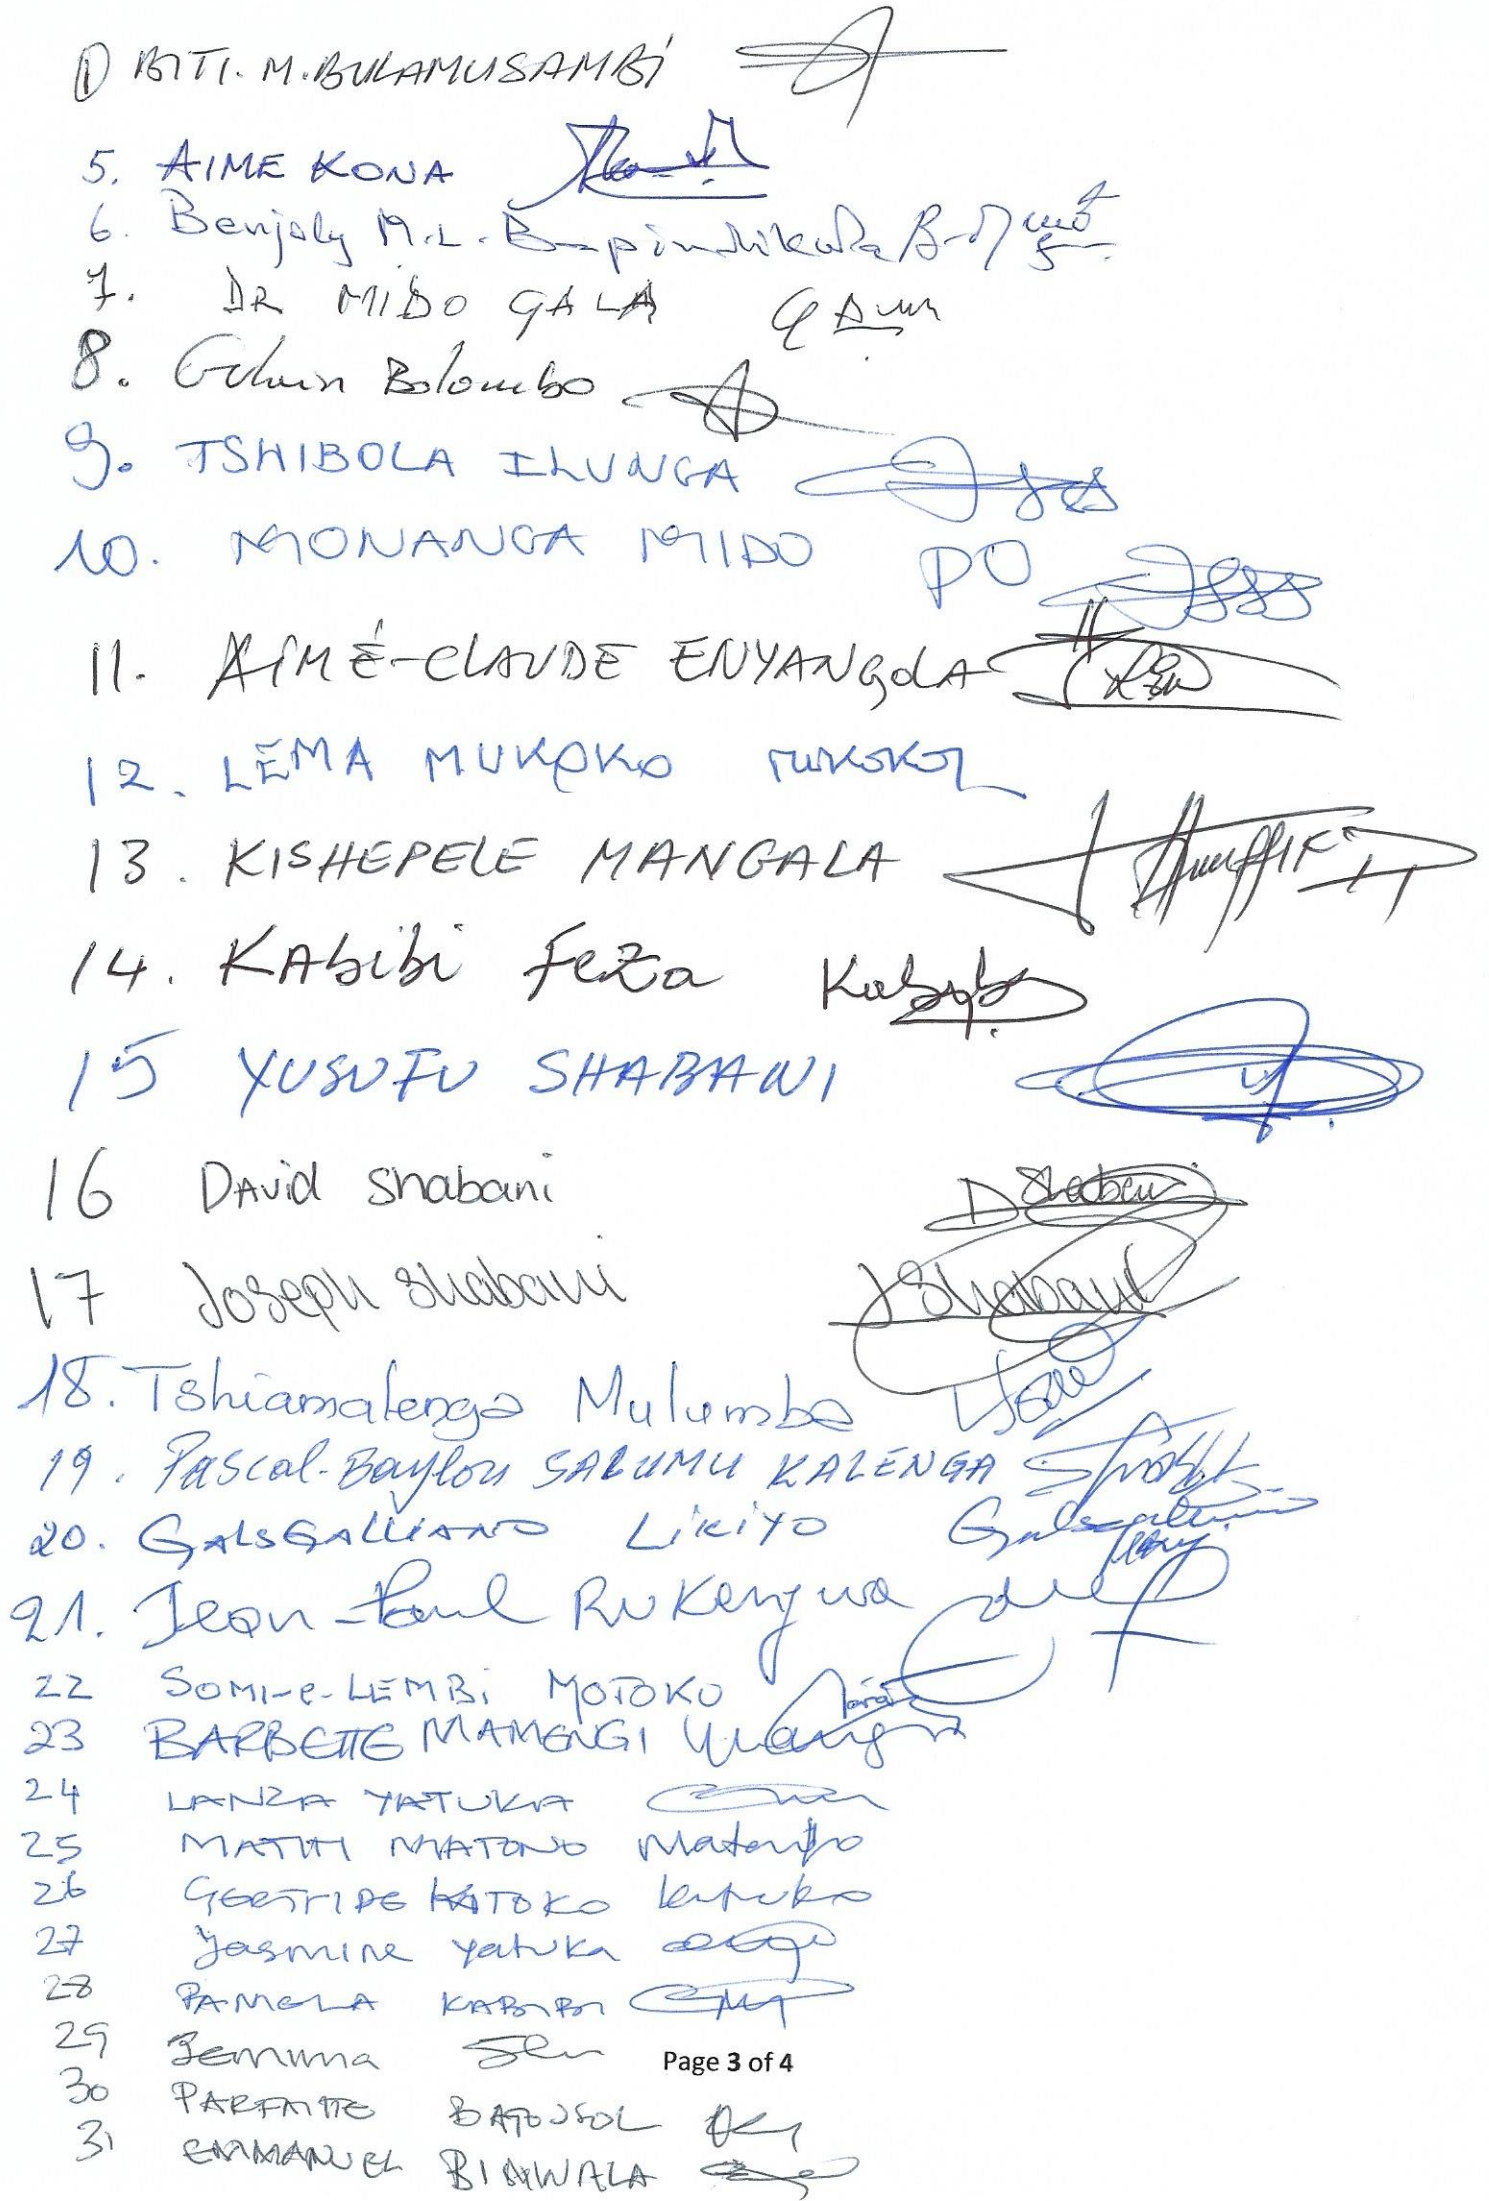 ① BITI. M. BULAMUSAMBI
5. AIME KONA
6. Benjoly M.L.
7. DR MIDO GALA
8. Edwin Bolombo
9. TSHIBOLA ILUNGA
10. MONANGA MIDO PO
11. AIMÉ-CLAUDE ENYANGOLA
12. LEMA MUKOKO
13. KISHEPELE MANGALA
14. KAbibi FeZa
15 YUSUFU SHABANI
16 DAvid Shabani D Shabani
17 Joseph Shabani J Shabani
18. Tshiamalenga Mulumba
19. Pascal-Baylon SALUMU KALENGA
20. GALSGALLIANO LIKIYO
21. Jean-Paul RUKengwa
22 SOMI-e-LEMBI MOTOKO
23 BARBETTE MAMENGI
24 LANZA YATUKA
25 MATITI MATONO
26 KATOKO
27 Jasmine Yatuka
28 PAMELA KABIBI
29 Jemima
Page 3 of 4
30 PARFAITTE
31 EMMANUEL BINWALA